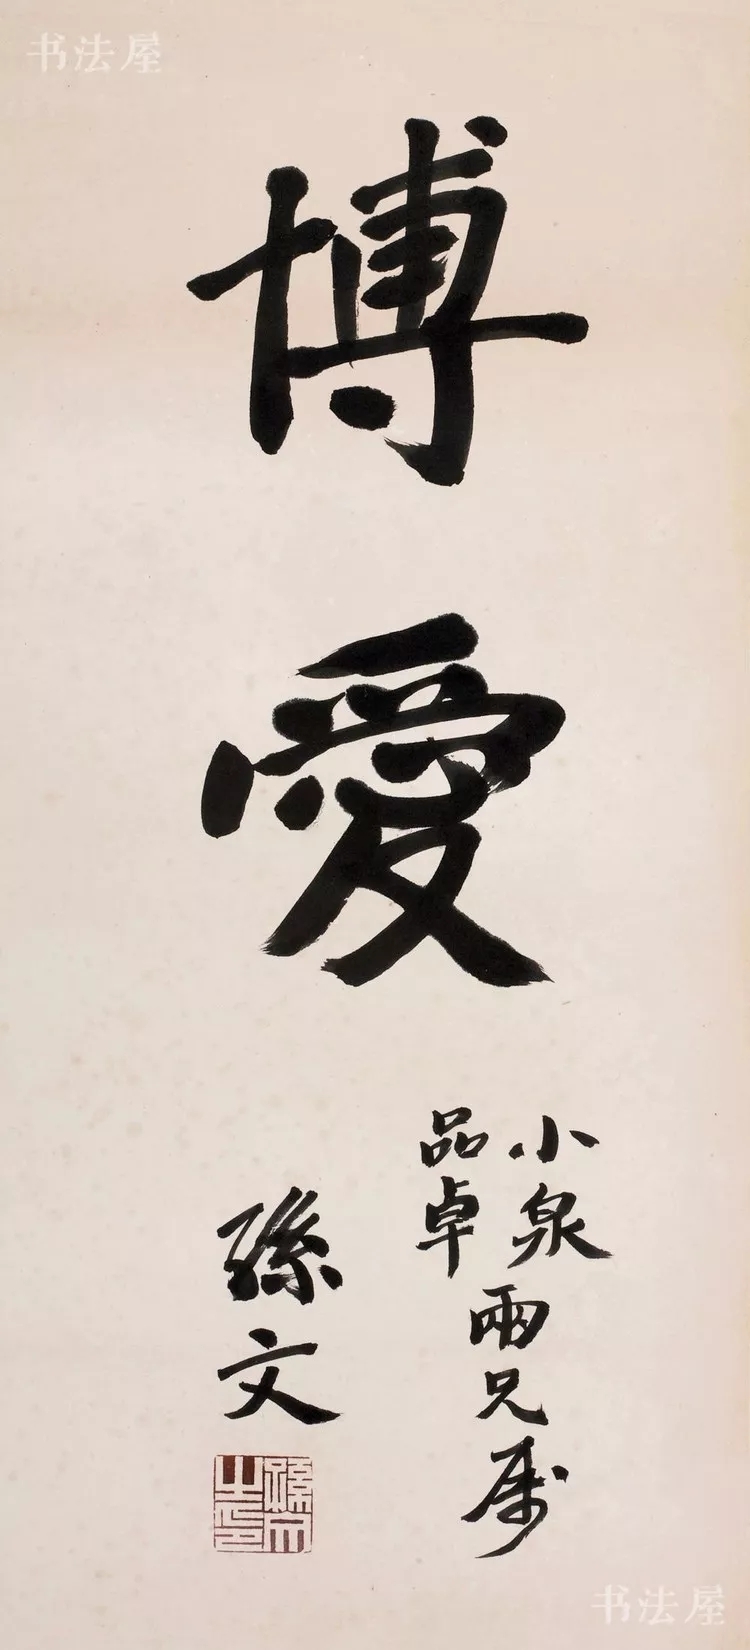 书法屋
博
愛
小泉
品卓
兩兄属
孫文
孫文之印
书法屋